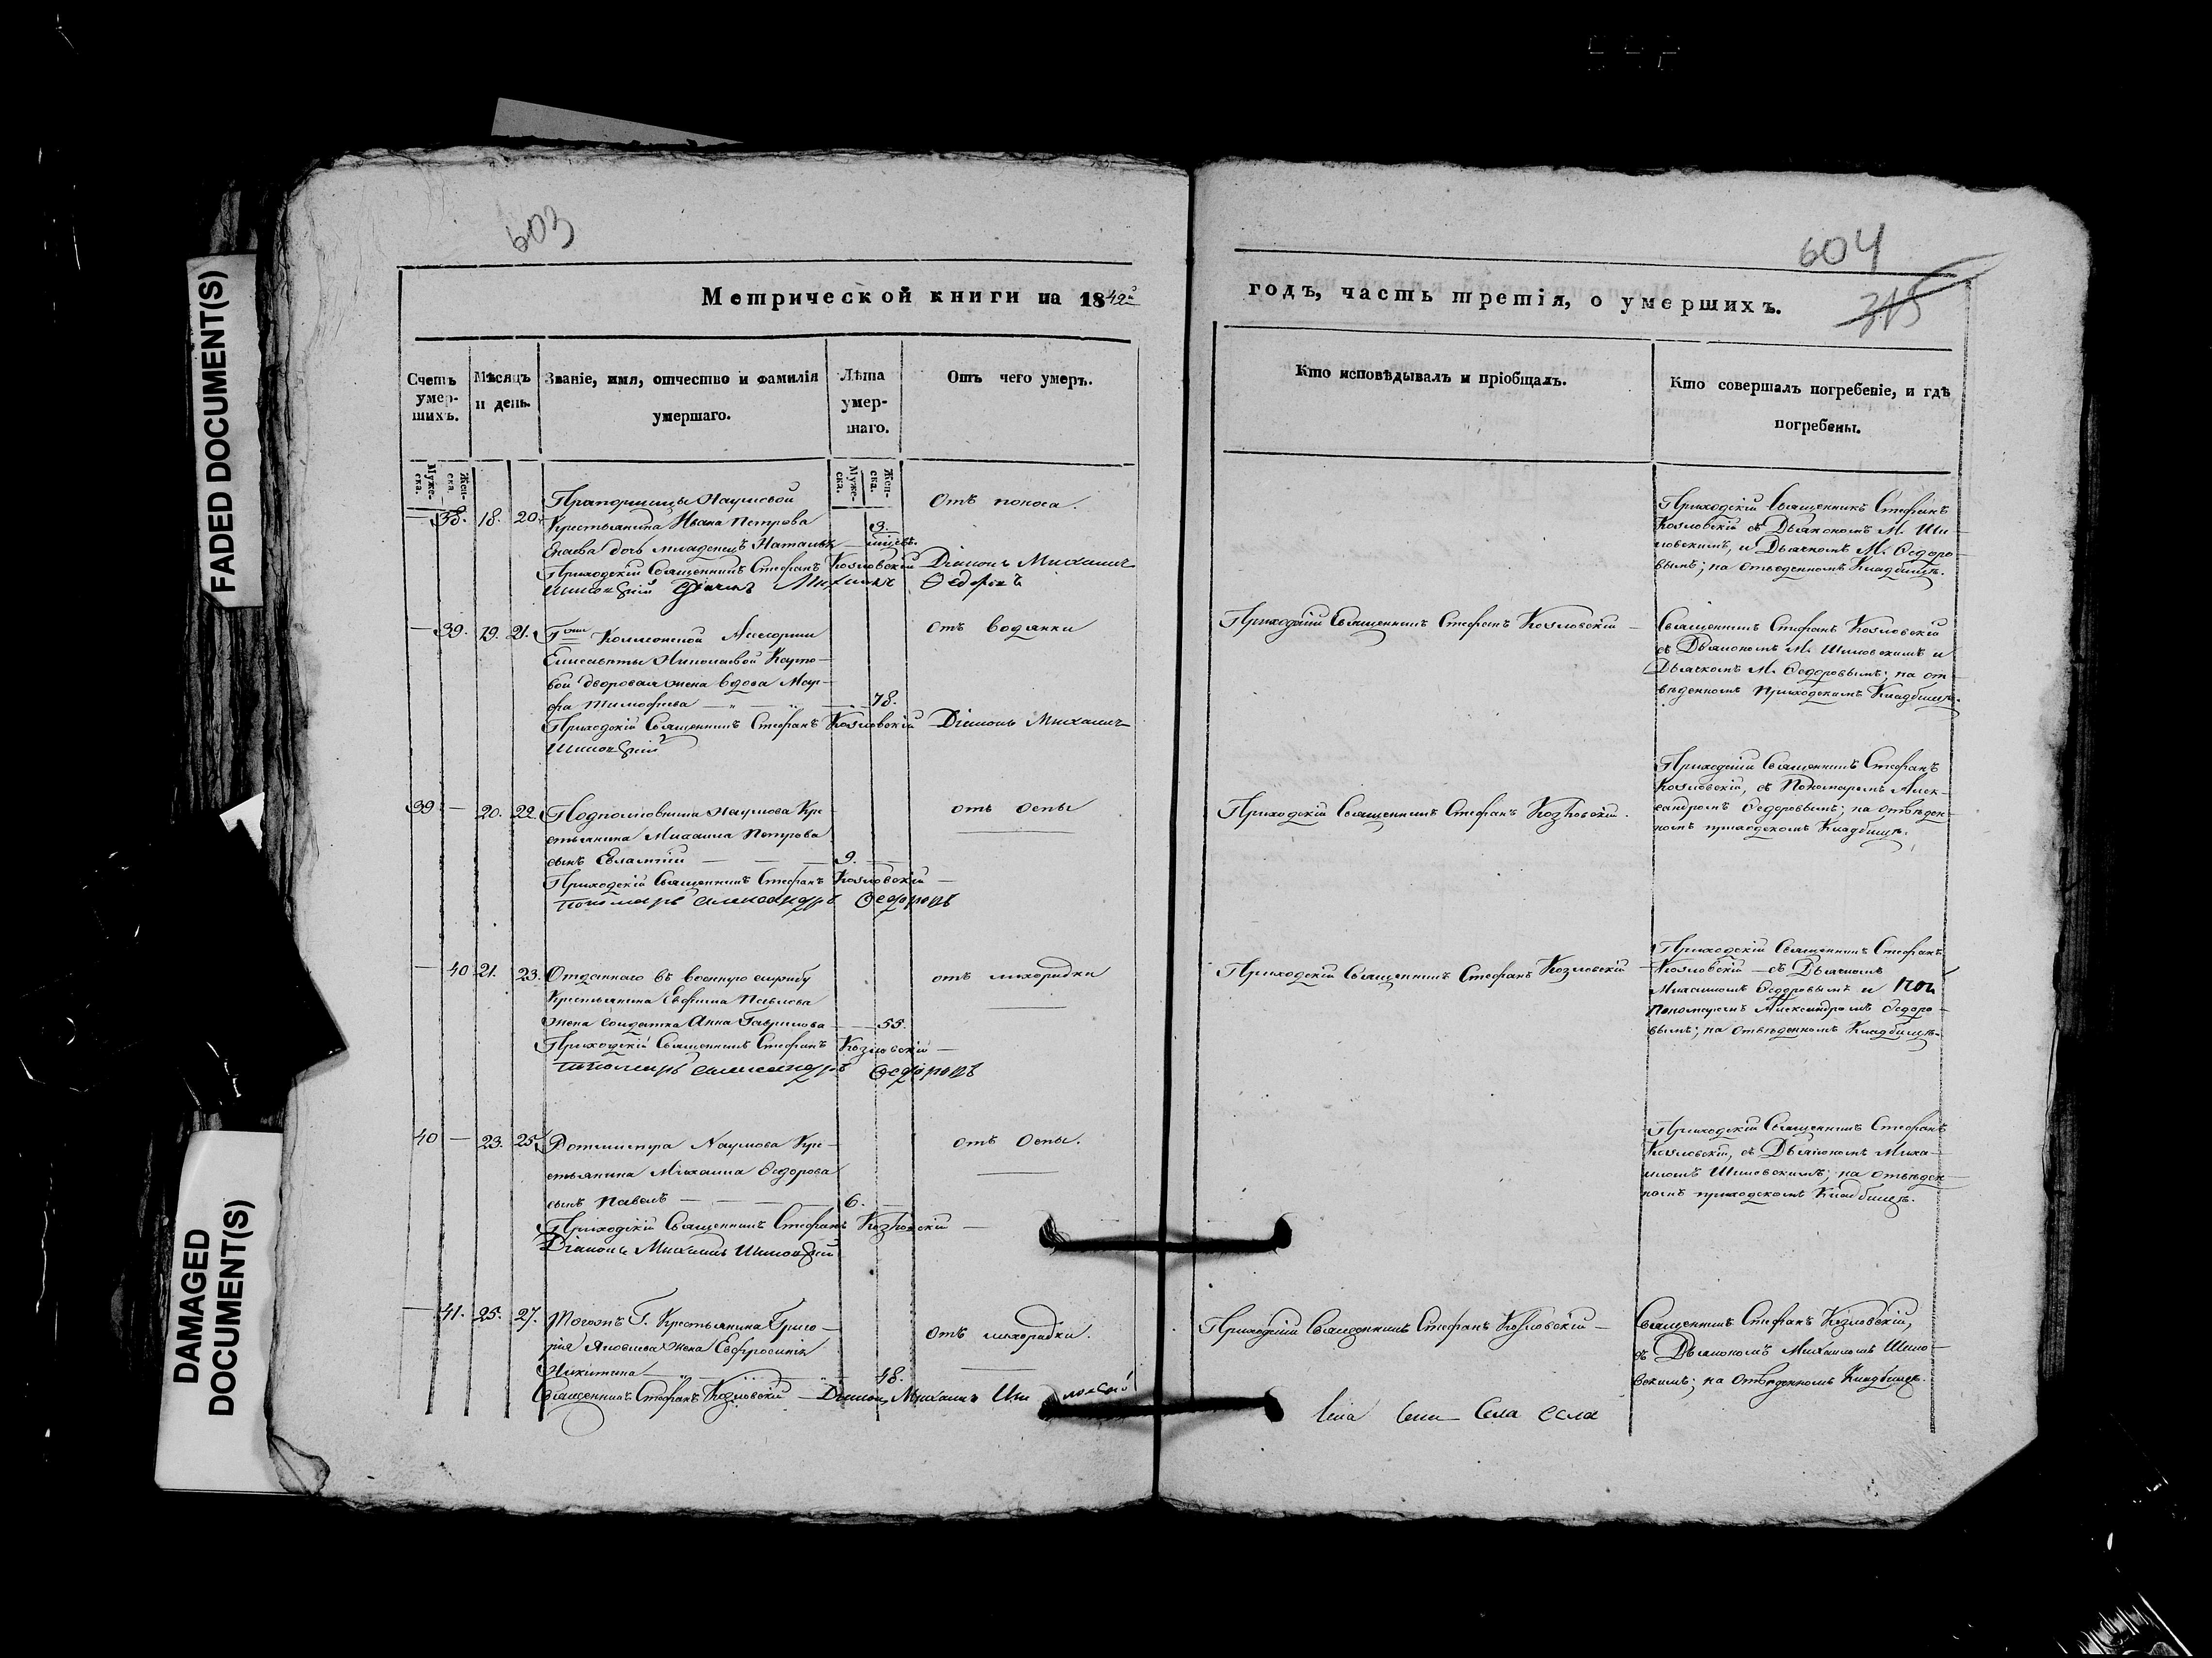 603
604
315
FADED DOCUMENT(S)
DAMAGED
DOCUMENT(S)
Метрической книги на 1842й
годъ, часть третія, о умершихъ.
Счетъ умер-шихъ.
Мѣсяцъ и день.
Званіе, имя, отчество и фамилія
умершаго.
Лѣта умер-шаго.
Отъ чего умеръ.
Кто исповѣдывалъ и пріобщалъ.
Кто совершалъ погребеніе, и гдѣ
погребены.
Муже-ска.
Жен-ска.
Муже-ска.
Жен-ска.
Прапорщицы Наумовой
— 38. 18. 20. Крестьянина Ивана Петрова
дочь младенецъ Наталья — 3.
Отъ поноса.
Приходскій Священникъ Стефанъ Козловскій Діаконъ Михаилъ
Шиловскій Дьячекъ Михаилъ Ѳедоровъ
Приходскій Священникъ Стефанъ
Козловскій съ Дьякономъ М. Ши-
ловскимъ, и Дьячкомъ М. Ѳедоро-
вымъ; на отведенномъ Кладбищѣ.
— 39. 19. 21. Гжи
Елисаветы Николаевой
вой дворовая жена вдова Мар-
фа Тимофѣева — 78.
отъ водянки
Приходскій Священникъ Стефанъ Козловскій Діаконъ Михаилъ
Шиловскій
Приходскій Священникъ Стефанъ Козловскій —
Священникъ Стефанъ Козловскій
съ Дьякономъ М. Шиловскимъ и
Дьячкомъ М. Ѳедоровымъ; на от-
веденномъ приходскомъ Кладбищѣ.
39 — 20. 22. Подполковника Наумова Кре-
стьянина Михаила Петрова
сынъ Евлампій — 9.
отъ оспы
Приходскій Священникъ Стефанъ Козловскій —
пономарь Александръ Ѳедоровъ
Приходскій Священникъ Стефанъ Козловскій.
Приходскій Священникъ Стефанъ
Козловскій, съ Пономаремъ Алек-
сандромъ Ѳедоровымъ; на отведен-
номъ приходскомъ Кладбищѣ.
— 40 21. 23. Отданнаго въ военную службу
Крестьянина Ефима Павлова
жена солдатка Анна Гаврилова — 55.
отъ лихорадки
Приходскій Священникъ Стефанъ Козловскій —
пономарь Александръ Ѳедоровъ
Приходскій Священникъ Стефанъ Козловскій
Приходскій Священникъ Стефанъ
Козловскій — съ Дьячкомъ
Михаиломъ Ѳедоровымъ и пон
пономаремъ Александромъ Ѳедоро-
вымъ; на отведенномъ Кладбищѣ.
40 — 23. 25. Ротмистра Наумова Кре-
стьянина Михаила Ѳедорова
сынъ Павелъ — 6.
отъ оспы.
Приходскій Священникъ Стефанъ Козловскій —
Діаконъ Михаилъ Шиловскій
Приходскій Священникъ Стефанъ
Козловскій, съ Дьякономъ Миха-
иломъ Шиловскимъ; на отведен-
номъ приходскомъ Кладбищѣ.
— 41. 25. 27. Тогожъ Г. Крестьянина Григо-
рія Яковлева жена Евфросинія
Никитина — 48.
отъ лихорадки.
Священникъ Стефанъ Козловскій — Діаконъ Михаилъ Шиловскій
Приходскій Священникъ Стефанъ Козловскій —
Священникъ Стефанъ Козловскій,
съ Дьякономъ Михаиломъ Шило-
вскимъ; на отведенномъ Кладбищѣ.
Села Села